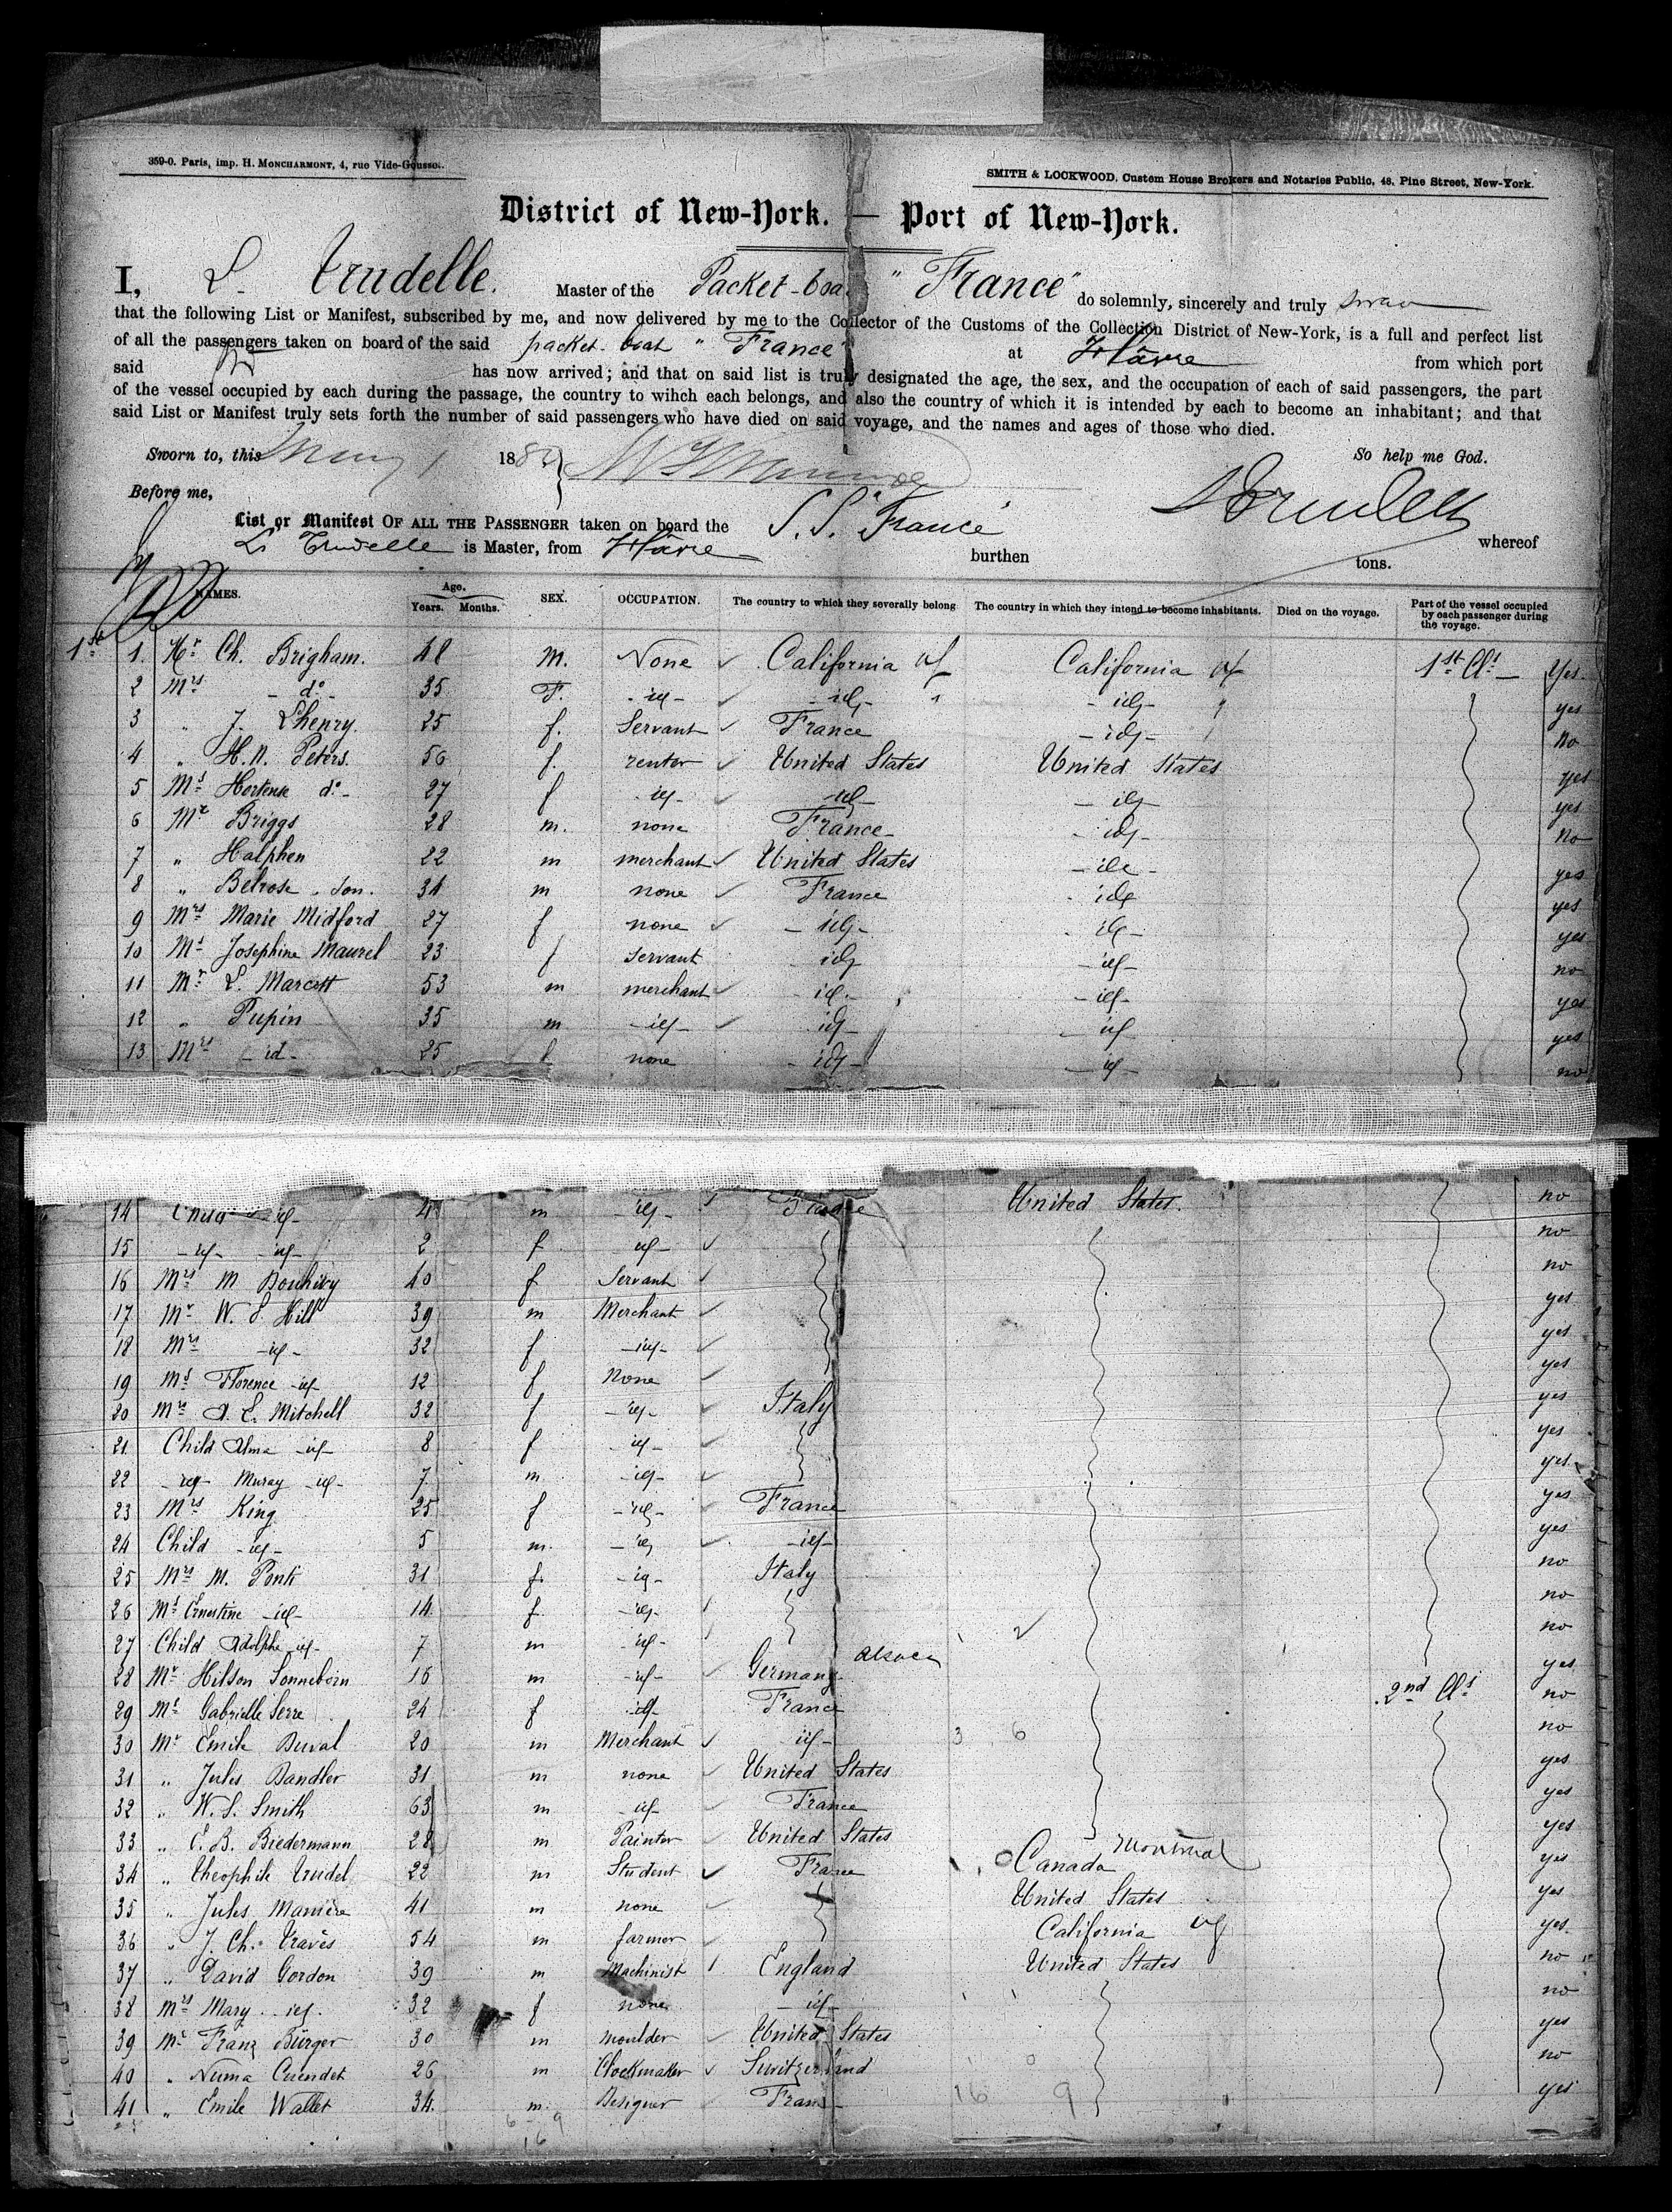 359-0. Paris, imp. H. MONCHARMONT, 4, rue Vide-Gousset.
SMITH & LOCKWOOD, Custom House Brokers and Notaries Public, 48, Pine Street, New-York.
District of New-York. — Port of New-York.
I, L. Trudelle. Master of the Packet-boat "France" do solemnly, sincerely and truly swear
that the following List or Manifest, subscribed by me, and now delivered by me to the Collector of the Customs of the Collection District of New-York, is a full and perfect list
of all the passengers taken on board of the said packet-boat "France" at Hâvre from which port
said has now arrived; and that on said list is truly designated the age, the sex, and the occupation of each of said passengers, the part
of the vessel occupied by each during the passage, the country to wihch each belongs, and also the country of which it is intended by each to become an inhabitant; and that
said List or Manifest truly sets forth the number of said passengers who have died on said voyage, and the names and ages of those who died.
Sworn to, this May 1 188 So help me God.
Before me, LTrudelle
List or Manifest OF ALL THE PASSENGER taken on board the S.S. "France" whereof
L. Trudelle is Master, from Hâvre burthen tons.
NAMES. Age. Years. Months. SEX. OCCUPATION. The country to which they severally belong The country in which they intend to become inhabitants. Died on the voyage. Part of the vessel occupied by each passenger during the voyage.
1st 1. Mr Ch. Brigham. 48 M. None California California 1st Cls Yes
2 Mrs - do - 35 F. - id - - id - - id - yes
3 " J. Lhenry. 25 f. Servant France - id - no
4 " H.N. Peters. 56 f. renter United States United States yes
5 Ms Hortense do - 27 f - id - - id - - id - yes
6 Mr Briggs 28 m. none France - id - no
7 " Halphen 22 m merchant United States - id - yes
8 " Belrose, Son. 34 m none France id yes
9 Mrs Marie Midford 27 f none - id - - id - yes
10 Ms Josephine Maurel 23 f Servant - id - id - no
11 Mr L. Marcott 53 m merchant - id - - id - yes
12 " Pupin 35 m - id - id - - id yes
13 Mrs - id - 25 f none - id - - id no
14 Child - id - 4 m - id - France United States. no
15 - id - - id - 2 f - id - no
16 Mrs M 40 f Servant no
17 Mr W. S. Hill 39 m Merchant yes
18 Mrs - id - 32 f - id - yes
19 Ms Florence - id - 12 f None yes
20 Mrs A. E. Mitchell 32 f - id - Italy yes
21 Child Alma - id - 8 f - id - yes
22 - id - Muray - id - 7 m - id - yes
23 Mrs King 25 f - id - France yes
24 Child - id - 5 m. - id - id - yes
25 Mrs M. Ponti 31 f. - id - Italy no
26 Ms Ernestine - id - 14 f. - id - no
27 Child Adolphe id - 7 m - id - no
28 Mr Hilson Sonneborn 16 m - id - Germany Alsace yes
29 Ms Gabrielle Serre 24 f id - France 2nd Cls no
30 Mr Emile Duval 20 m Merchant id - 3 6 no
31 " Jules Bandler 31 m none United States yes
32 " W. S. Smith 63 m - id - France yes
33 " E. B. Biedermann 28 m Painter United States yes
34 " Theophile Trudel 22 m Student France Canada Montreal yes
35 " Jules Manière 41 m none United States yes
36 " J. Ch. Travès 54 m farmer California yes
37 " David Gordon 39 m Machinist England United States no
38 Mrs Mary id. 32 f none - id - no
39 Mr Franz Bürger 30 m Moulder United States yes
40 " Numa Cuendet 26 m Clockmaker Switzerland no
41 " Emile Wallet 34. m. Designer France 16 9 yes
6 - 9
16